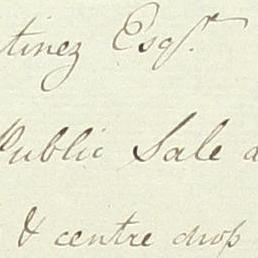 tinez Esqr.
Public Sale a
& centre drop